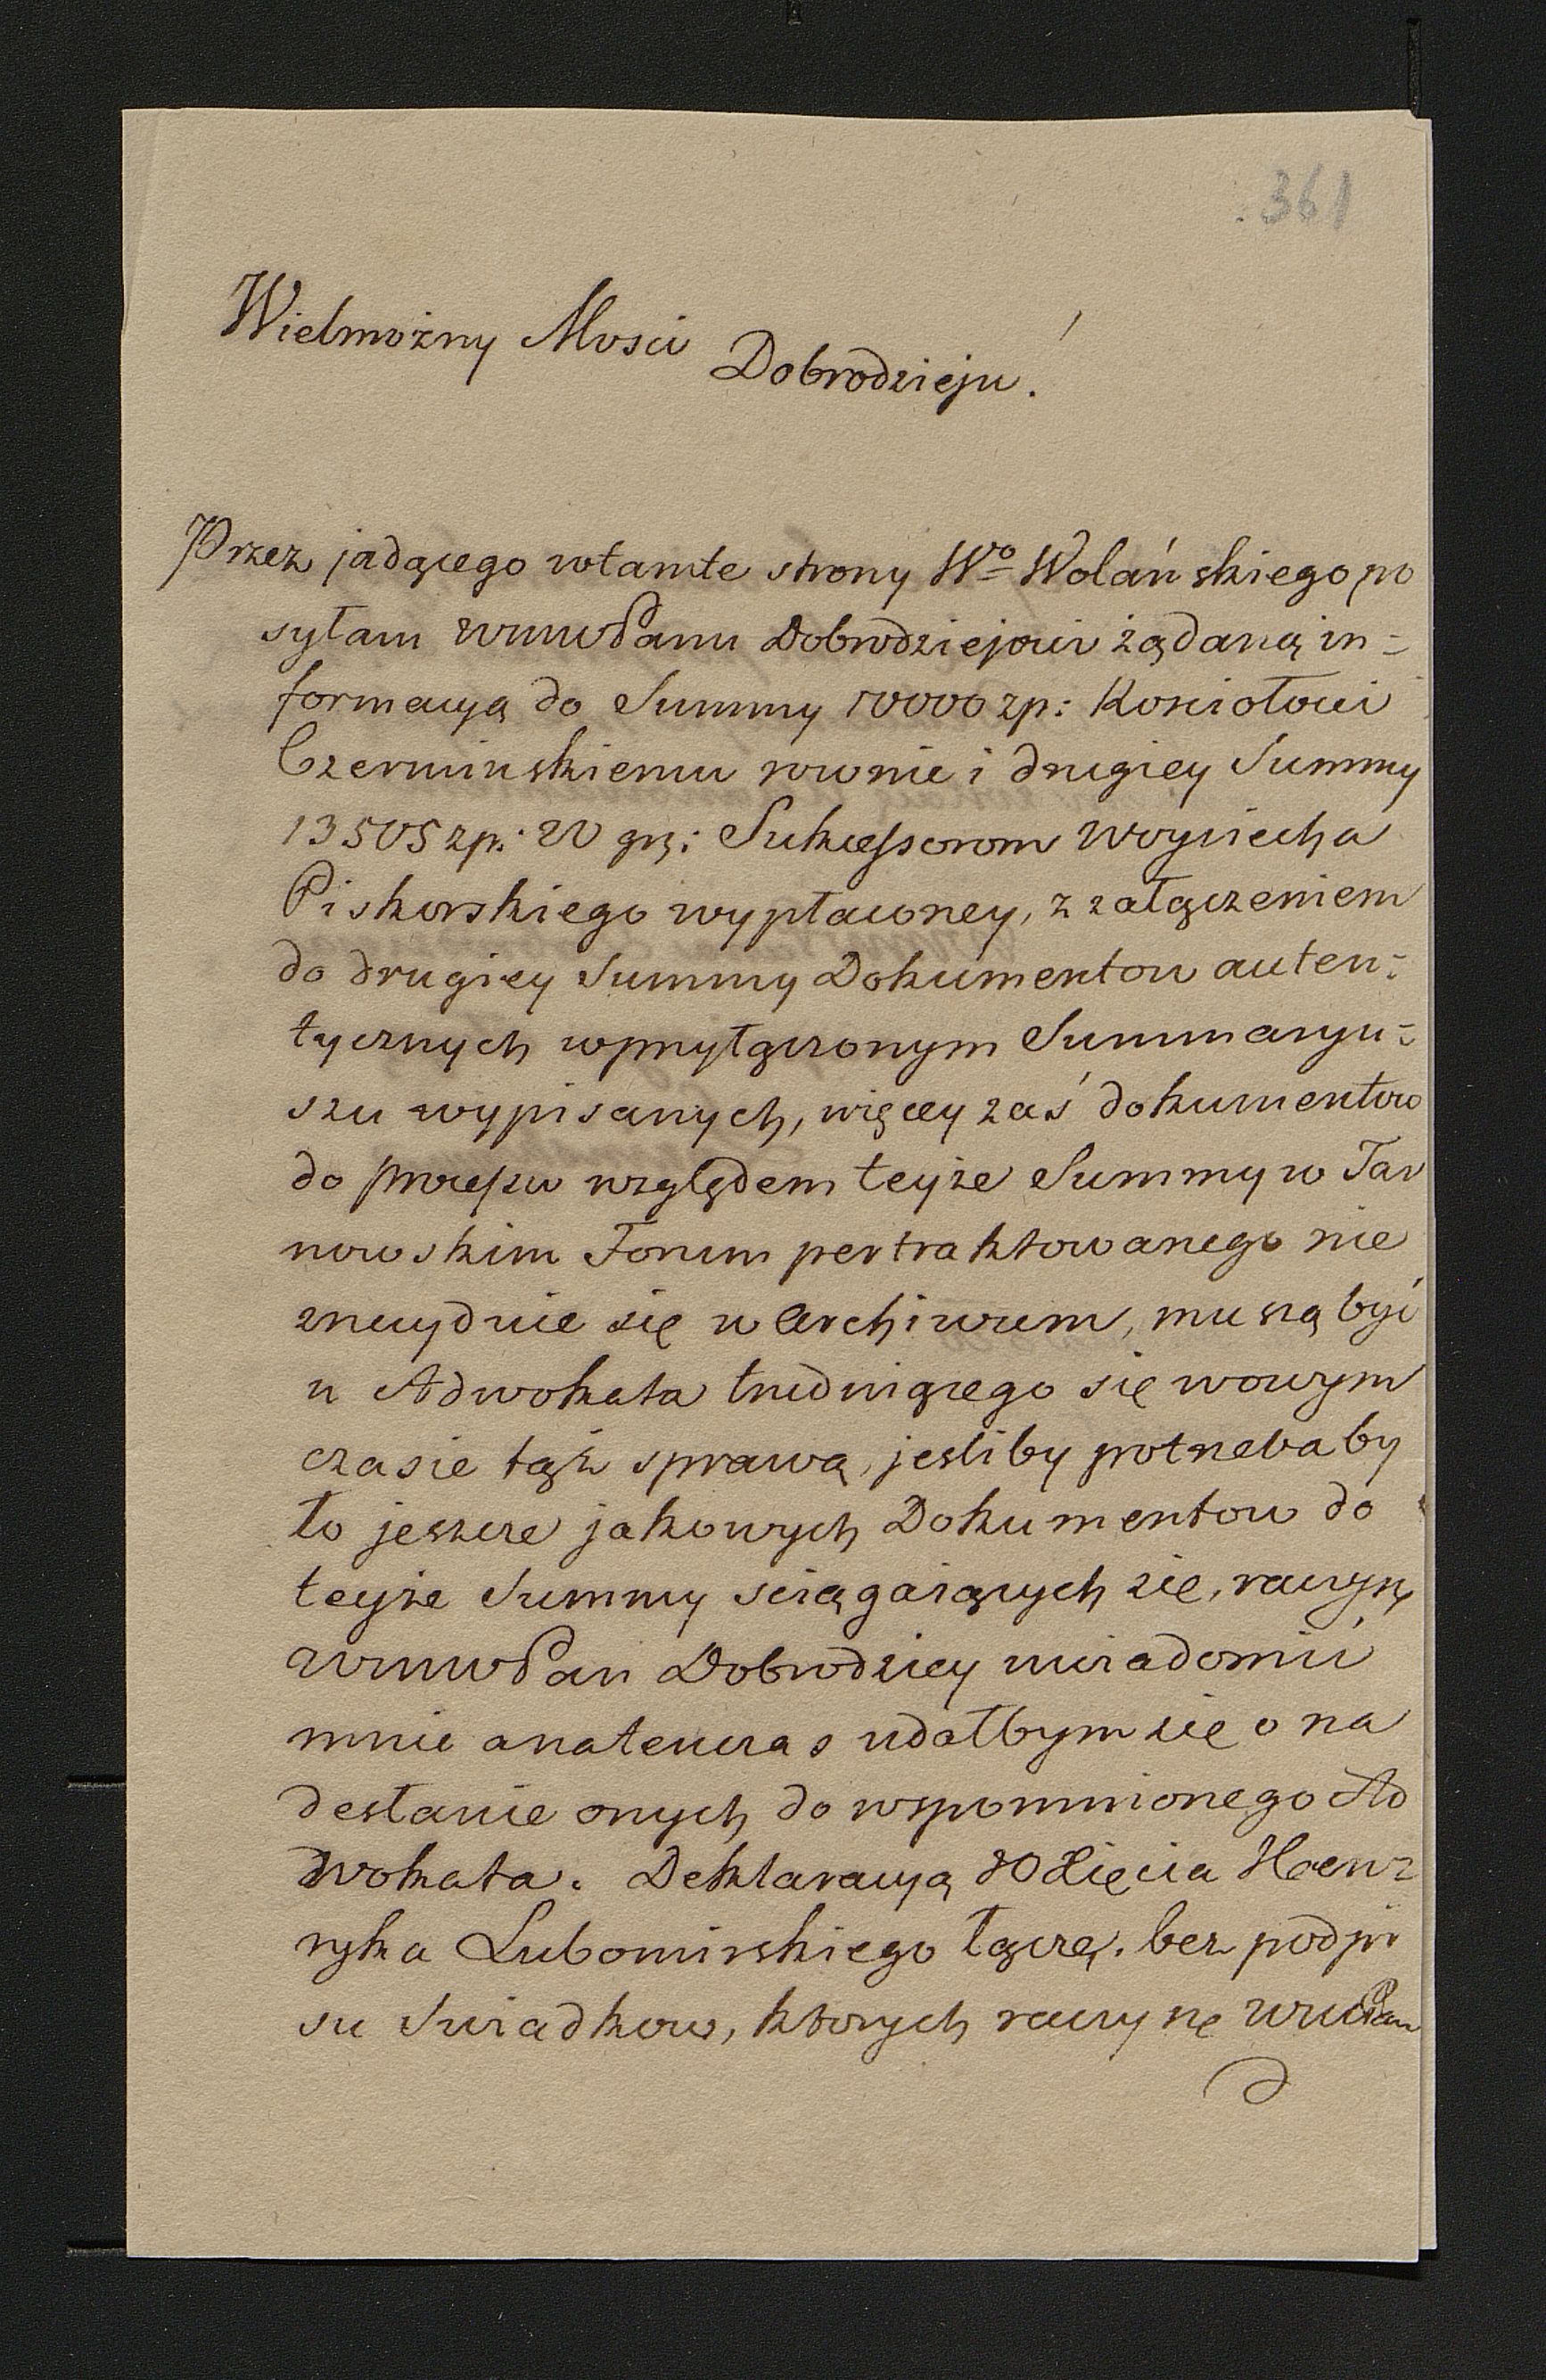 361
Wielmożny Mosci Dobrodzieju.
Przez jadącego wtamte strony Wo Wolańskiego po
syłam WMWPanu Dobrodziejowi żądaną in=
formacyą do Summy 10000 zp: Kosciołowi
Czerminskiemu rownie i drugiey Summy
13505 zp: 20 gr: Sukcessorom Woyciecha
Piskorskiego wypłaconey, z załączeniem
do drugiey Summy Dokumentow auten=
tycznych wprzyłączonym Summaryu=
szu wypisanych, więcey zaś dokumentow
do processu względem teyże Summy w Tar
nowskim Forum pertraktowanego nie
znaydnie się w Archiwum, muszą być
u Adwokata trudniącego się wowym
czasie tąż sprawą, jesliby potrzeba by
ło jeszcze jakowych Dokumentow do
teyże Summy sciągaiących się, raczysz
WMWPan Dobrodziey uwiadomić
mnie a natenczas udałbym się o na
desłanie onych do wspomnionego Ad
wokata. Deklaracyą JO Xięcia Hen=
ryka Lubomirskiego łączę. bez podpi
su Swiadkow, ktorych raczysz WMWPan
D